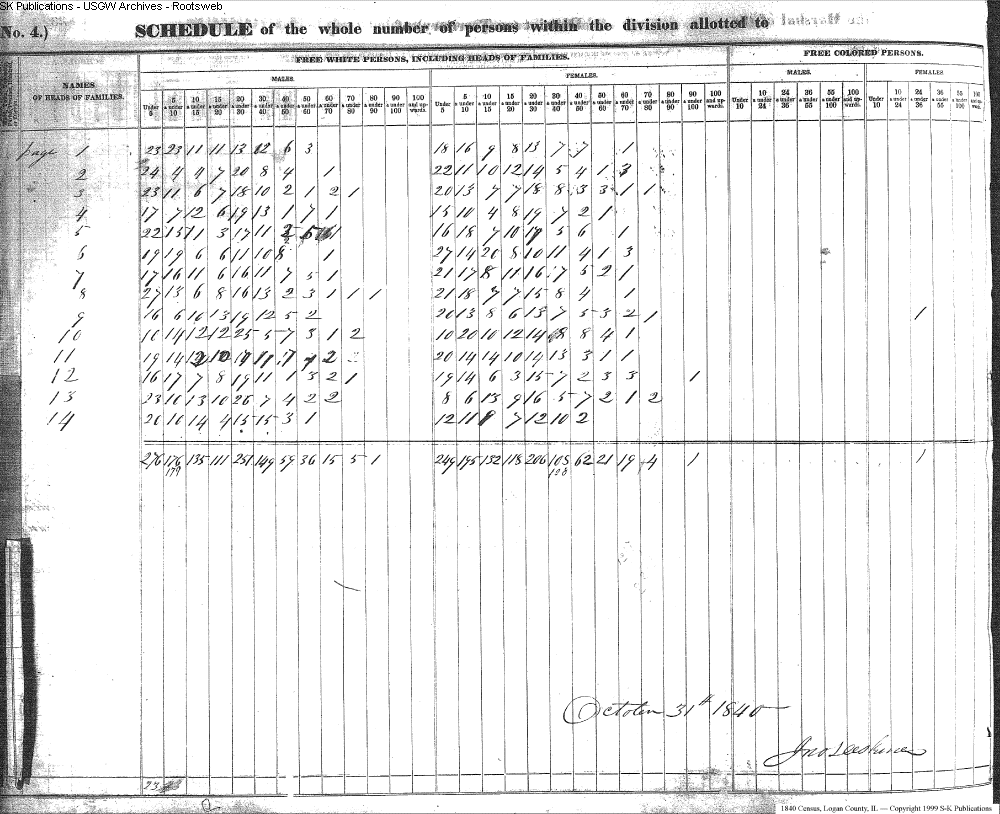 SK Publications - USGW Archives - Rootsweb
No. 4.)
SCHEDULE of the whole number of persons within the division allotted to
FREE WHITE PERSONS, INCLUDING HEADS OF FAMILIES.
FREE COLORED PERSONS.
MALES.
FEMALES.
MALES.
FEMALES
NAMES
OF HEADS OF FAMILIES.
Under 5 | 5 & under 10 | 10 & under 15 | 15 & under 20 | 20 & under 30 | 30 & under 40 | 40 & under 50 | 50 & under 60 | 60 & under 70 | 70 & under 80 | 80 & under 90 | 90 & under 100 | 100 and upwards.
Under 5 | 5 & under 10 | 10 & under 15 | 15 & under 20 | 20 & under 30 | 30 & under 40 | 40 & under 50 | 50 & under 60 | 60 & under 70 | 70 & under 80 | 80 & under 90 | 90 & under 100 | 100 and upwards.
Under 10 | 10 & under 24 | 24 & under 36 | 36 & under 55 | 55 & under 100 | 100 and upwards.
Under 10 | 10 & under 24 | 24 & under 36 | 36 & under 55 | 55 & under 100
page 1 23 23 11 11 13 12 6 3 18 16 9 8 13 7 7 1
2 24 4 4 7 20 8 4 1 22 11 10 12 14 5 4 1 3
3 23 11 6 7 18 10 2 1 2 1 20 13 7 7 18 8 3 3 1 1
4 17 7 12 6 19 13 1 7 1 15 10 4 8 19 7 2 1
5 22 15 11 3 17 11 1 16 18 7 10 5 6 1
6 19 19 6 6 11 10 8 1 27 14 20 8 10 11 4 1 3
7 17 16 11 6 16 11 7 5 1 21 17 8 11 16 7 5 2 1
8 27 13 6 8 16 13 2 3 1 1 1 21 18 7 7 15 8 4 1
9 16 6 16 13 19 12 5 2 20 13 8 6 13 7 5 3 2 1 1
10 10 14 12 12 25 5 7 3 1 2 10 20 10 12 14 8 8 4 1
11 19 14 11 7 2 20 14 14 10 14 13 3 1 1
12 16 17 7 8 19 11 1 3 2 1 19 14 6 3 15 7 2 3 3 1
13 23 10 13 10 26 7 4 2 2 8 6 13 9 16 5 7 2 1 2
14 20 10 14 4 15 15 3 1 12 11 7 12 10 2
276 176 135 111 251 149 59 36 15 5 1 249 195 132 118 206 108 62 21 19 4 1 1
179 128
October 31st 1840
1840 Census, Logan County, IL — Copyright 1999 S-K Publications